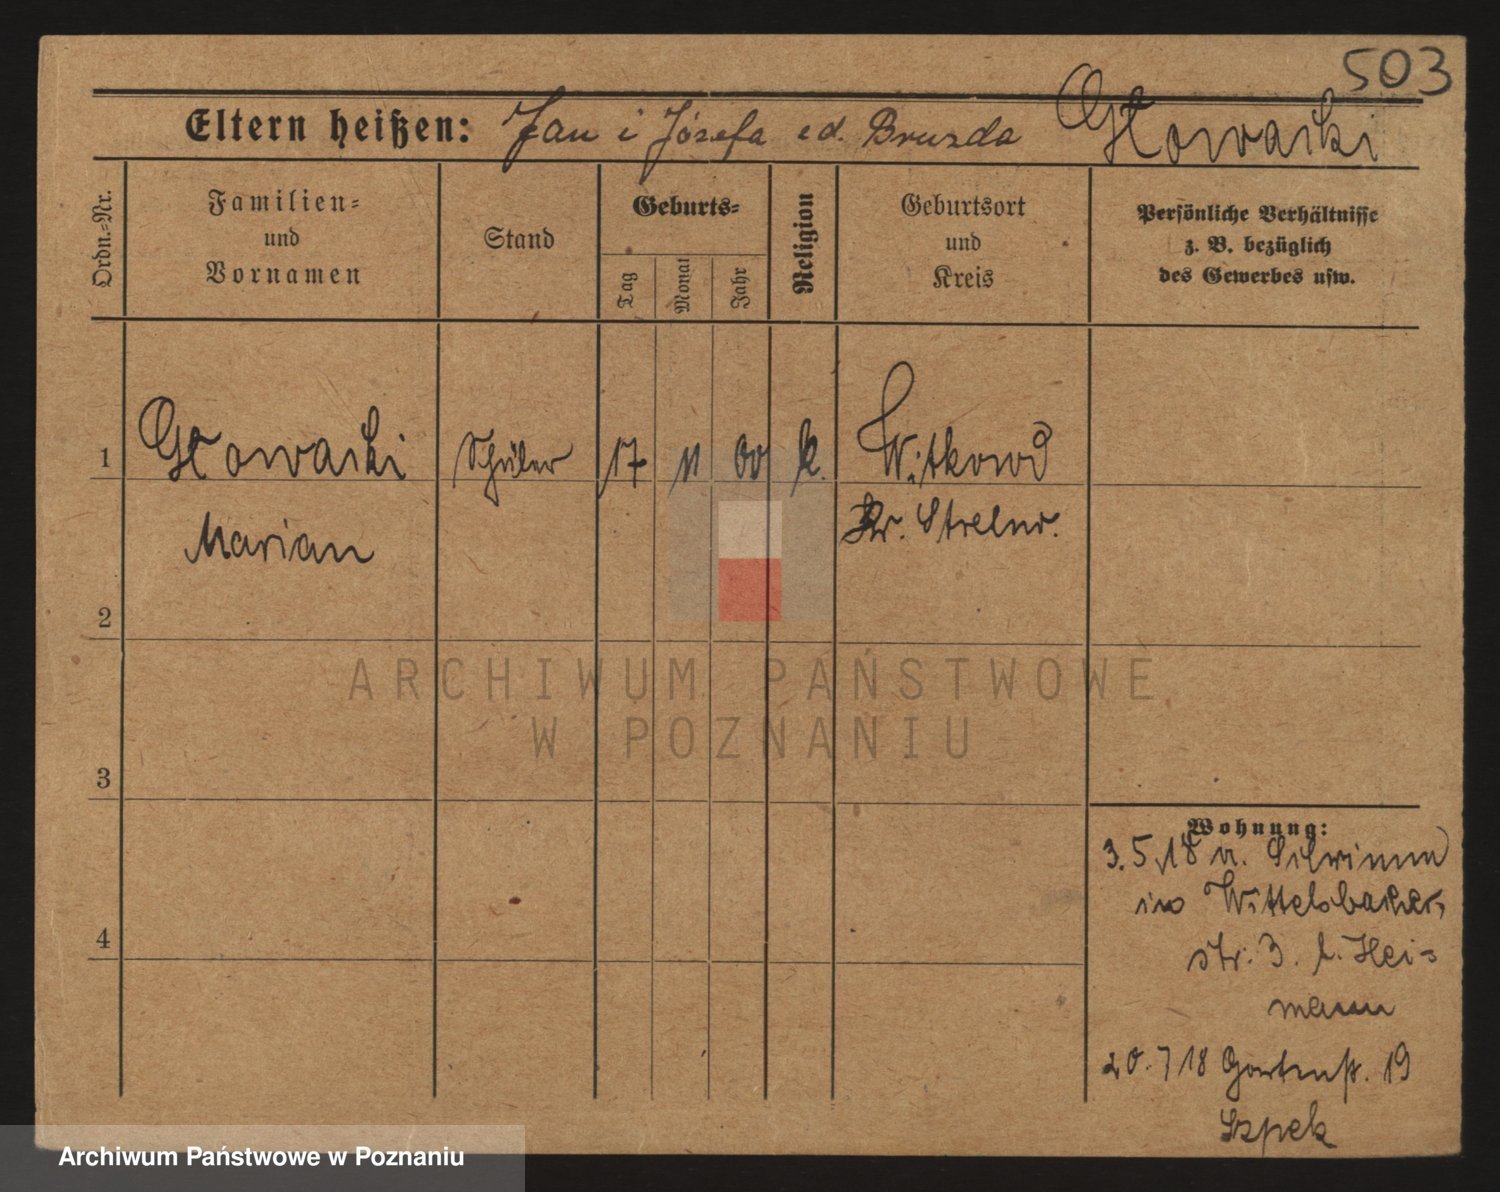 503
Eltern heißen: Jan i Józefa z d. Bruzda Głowacki
Ordn.-Nr.
Familien-
und
Vornamen
Stand
Geburts-
Tag
Monat
Jahr
Religion
Geburtsort
und
Kreis
Persönliche Verhältnisse
z. B. bezüglich
des Gewerbes usw.
1 Głowacki Schüler 17 11 00 k. Witkowo
Marian Kr. Strelno.
2
3
4
Wohnung:
3.5.18 n.
Wittelsbacher-
str. 3. b. Hei-
mann
20.7 18 Gartenstr. 19
Szpek
ARCHIWUM PAŃSTWOWE
W POZNANIU
Archiwum Państwowe w Poznaniu